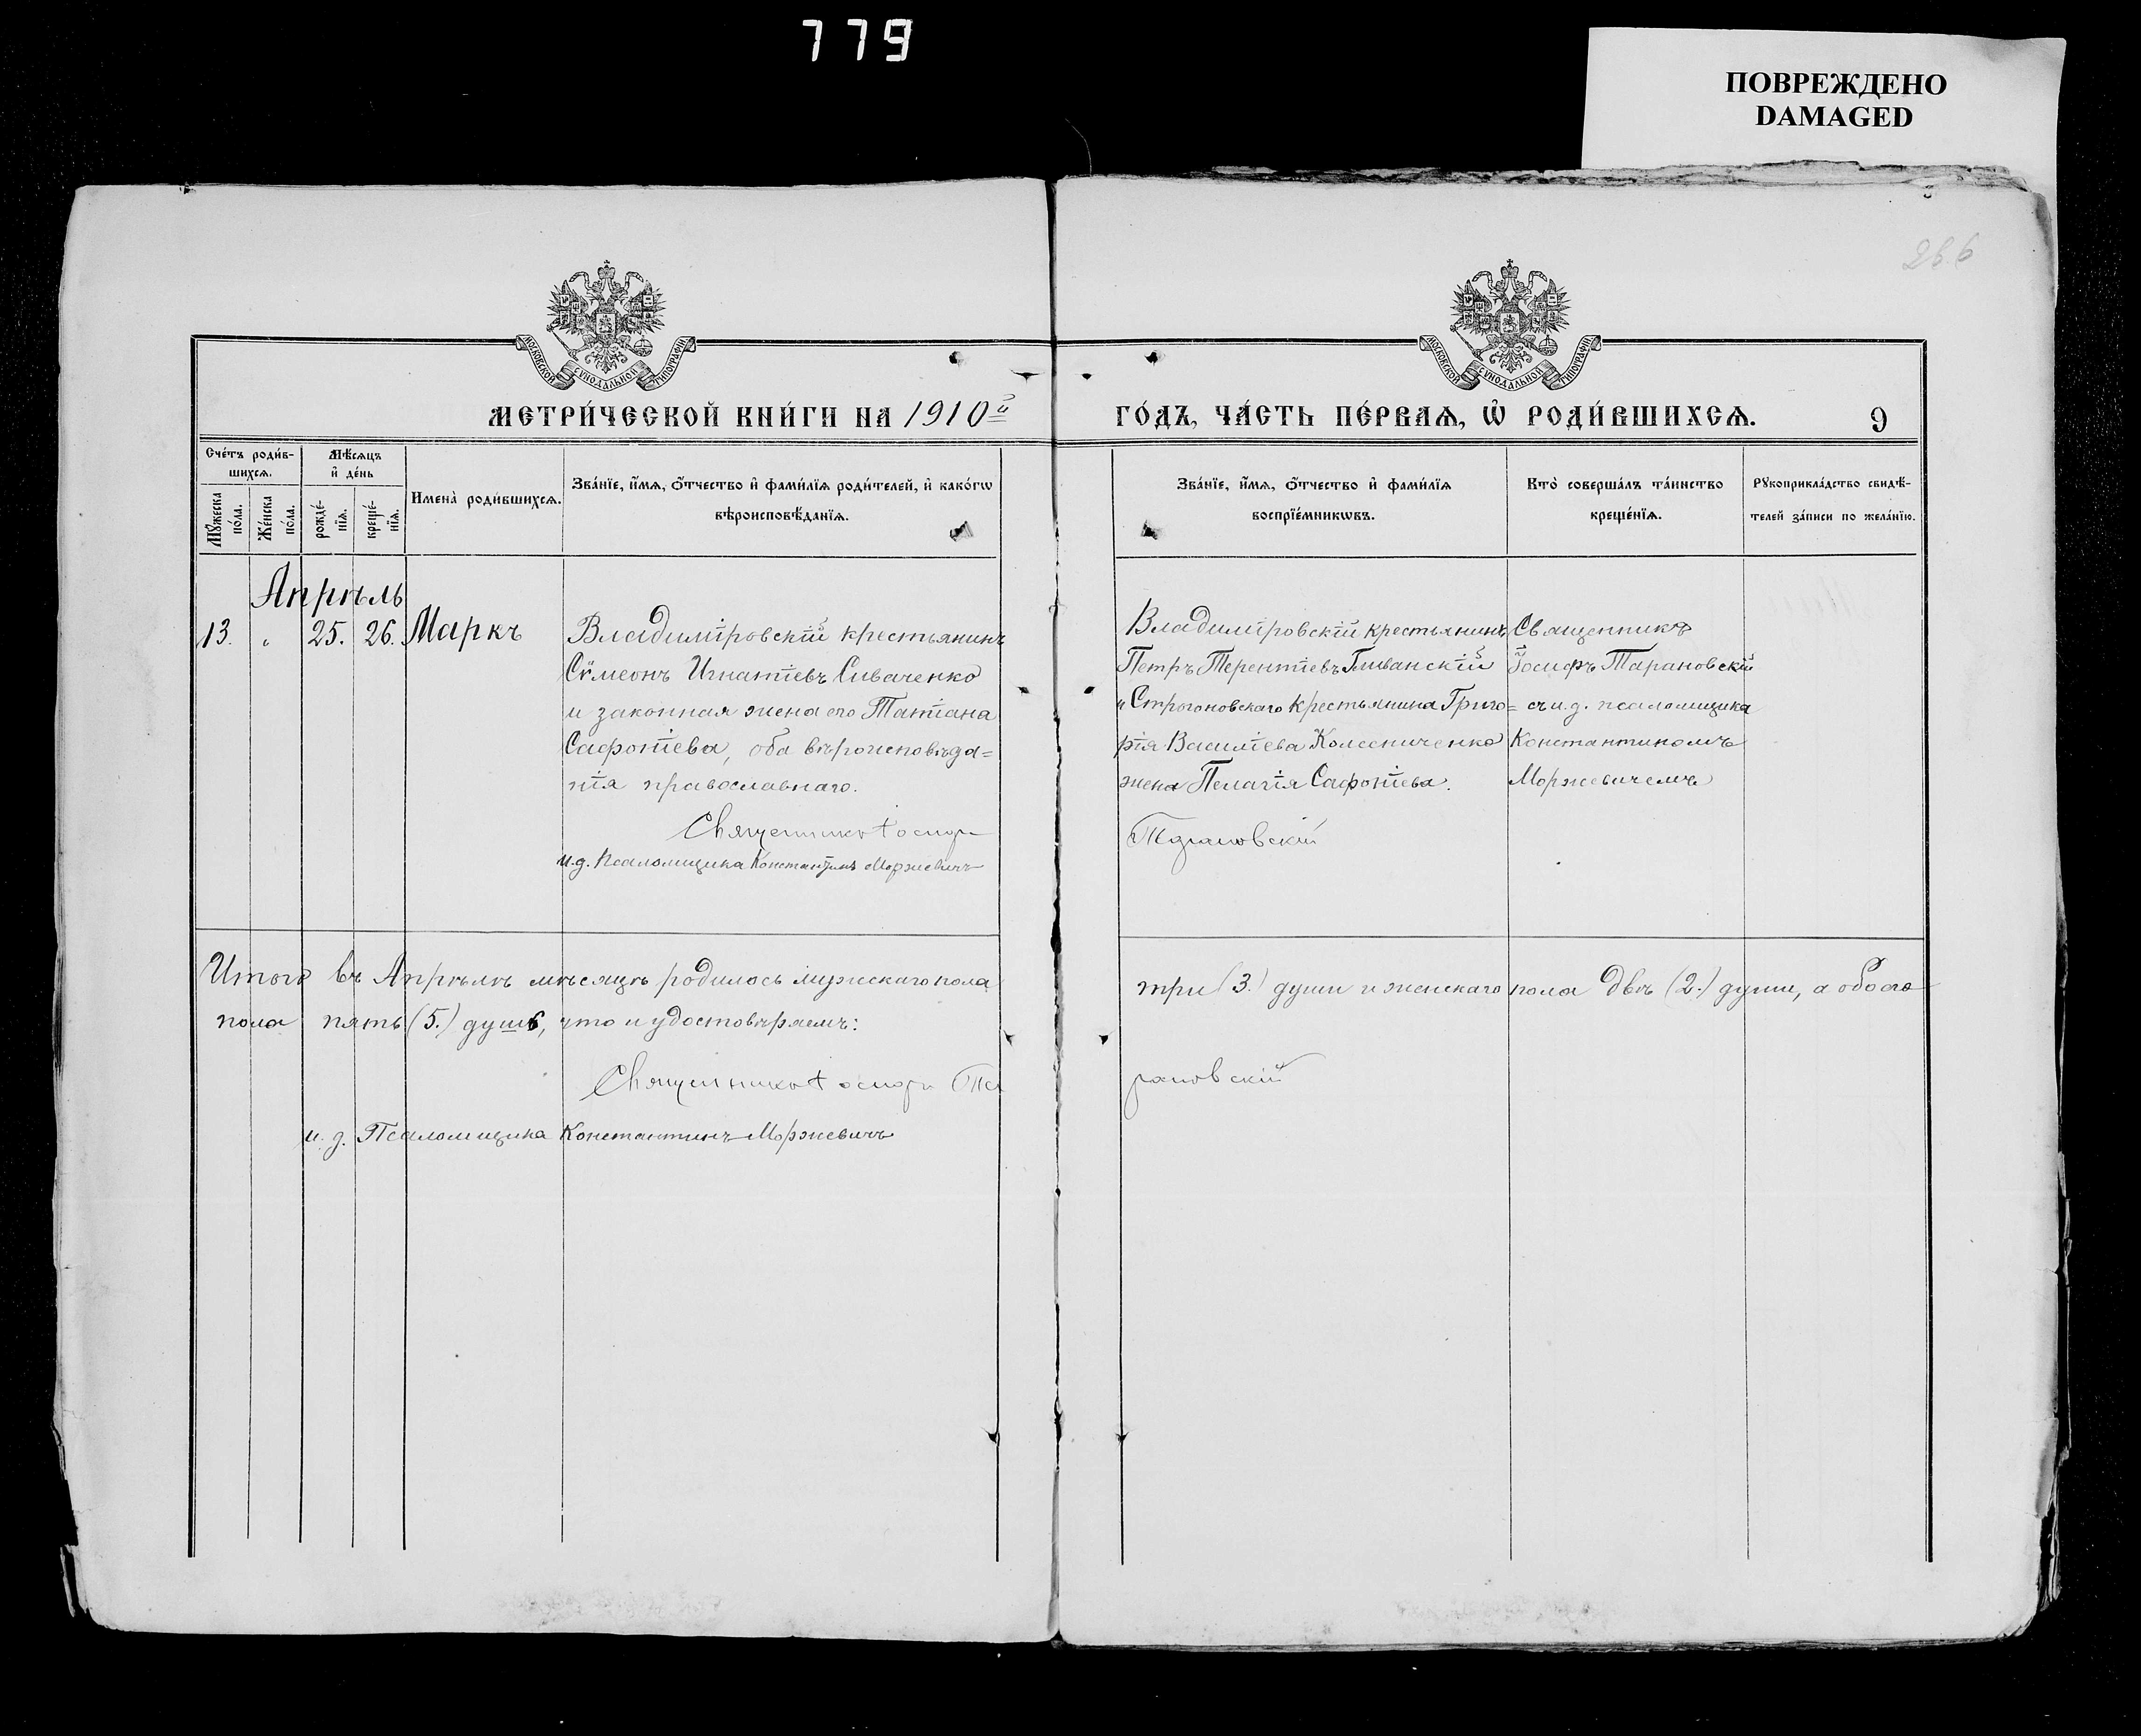 779
ПОВРЕЖДЕНО
DAMAGED
266
МОСКОВСКОЙ СѴНОДАЛЬНОЙ ТИПОГРАФІИ
МОСКОВСКОЙ СѴНОДАЛЬНОЙ ТИПОГРАФІИ
МЕТРИ́ЧЕСКОЙ КНИ́ГИ НА 1910й
ГО́ДЪ, ЧА́СТЬ ПЕ́РВАѦ, Ѡ҆ РОДИ́ВШИХСѦ. 9
Сче́тъ роди́в-
шихсѧ.
Мѣ́сѧцъ
и҆ де́нь
Мꙋ́жеска
по́ла.
Же́нска
по́ла.
рожде́-
нїѧ.
креще́-
нїѧ.
Имена̀ роди́вшихсѧ.
Зва́нїе, и҆́мѧ, ѻ҆́тчество и҆ фами́лїѧ роди́телей, и҆ како́гѡ
вѣроисповѣ́данїѧ.
Зва́нїе, и҆́мѧ, ѻ҆́тчество и҆ фами́лїѧ
воспрїе́мникѡвъ.
Кто̀ соверша́лъ та́инство
креще́нїѧ.
Рꙋкоприкла́дство свидѣ́-
телей за́писи по жела́нїю.
Апрѣль
13. „ 25. 26. Маркъ
Владимїровскїй крестьянинъ
Сѵмеонъ Игнатїевъ Сиваченко
и законная жена его Татїана
Сафонїева, оба вѣроисповѣда=
нїя православнаго.
Священникъ Іосифъ
и.д. Псаломщика Константинъ Моржевичъ
Владимїровскїй крестьянинъ
Петръ Терентїевъ Гливанскїй
и Строгоновскаго крестьянина Григо=
рїя Василїева Колесниченко
жена Пелагїя Сафонїева.
Тарановскій
Священникъ
Їосифъ Тарановскїй
съ и.д. псаломщика
Константиномъ
Моржевичемъ
Итого въ Апрѣлѣ мѣсяцѣ родилось мужескаго пола три (3.) души и женскаго пола двѣ (2.) души, а обоего
пола пять (5.) душъ, что и удостовѣряемъ:
Священникъ Іосифъ Тарановскій
и. д. Псаломщика Константинъ Моржевичъ